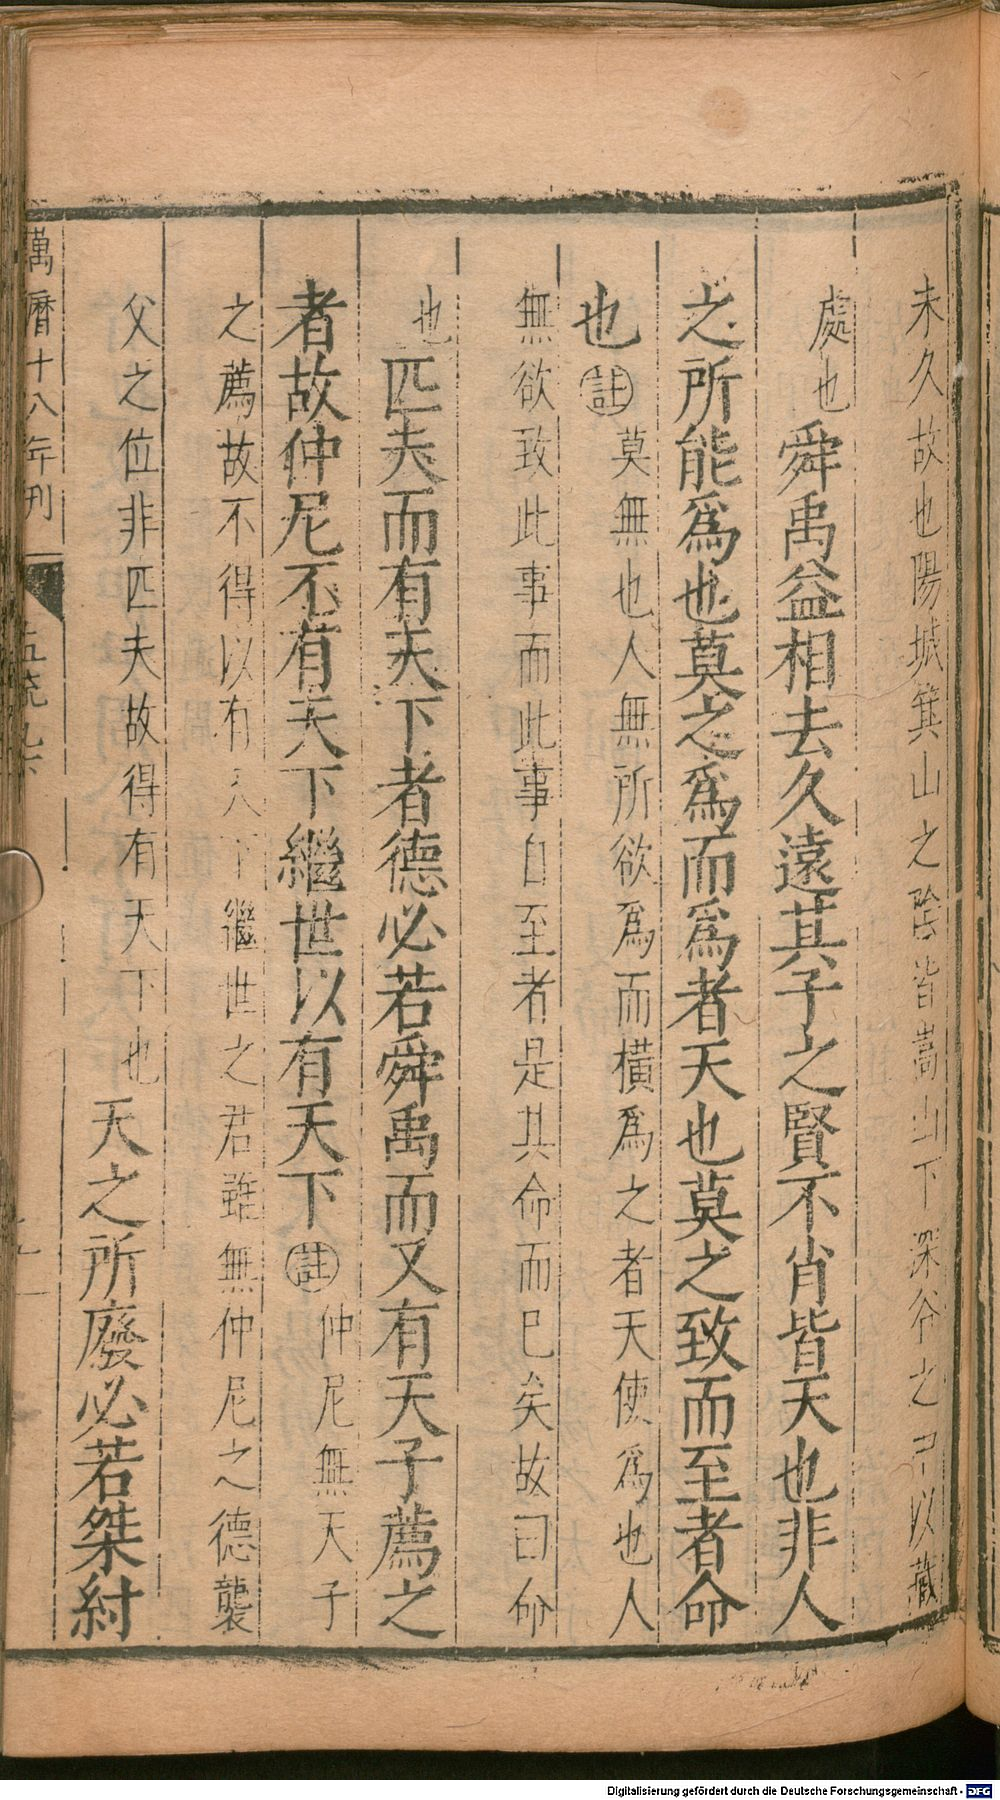 未久故也陽城箕山之陰皆嵩山下深谷之中以藏
處也舜禹益相去久遠其子之賢不肖皆天也非人
之所能爲也莫之爲而爲者天也莫之致而至者命
也註莫無也人無所欲爲而橫爲之者天使爲也人
無欲致此事而此事自至者是其命而已矣故曰命
也匹夫而有天下者德必若舜禹而又有天子薦之
者故仲尼不有天下繼世以有天下註仲尼無天子
之薦故不得以有天下繼世之君雖無仲尼之德襲
父之位非匹夫故得有天下也天之所廢必若桀紂
萬曆十八年刊
Digitalisierung gefördert durch die Deutsche Forschungsgemeinschaft - DFG